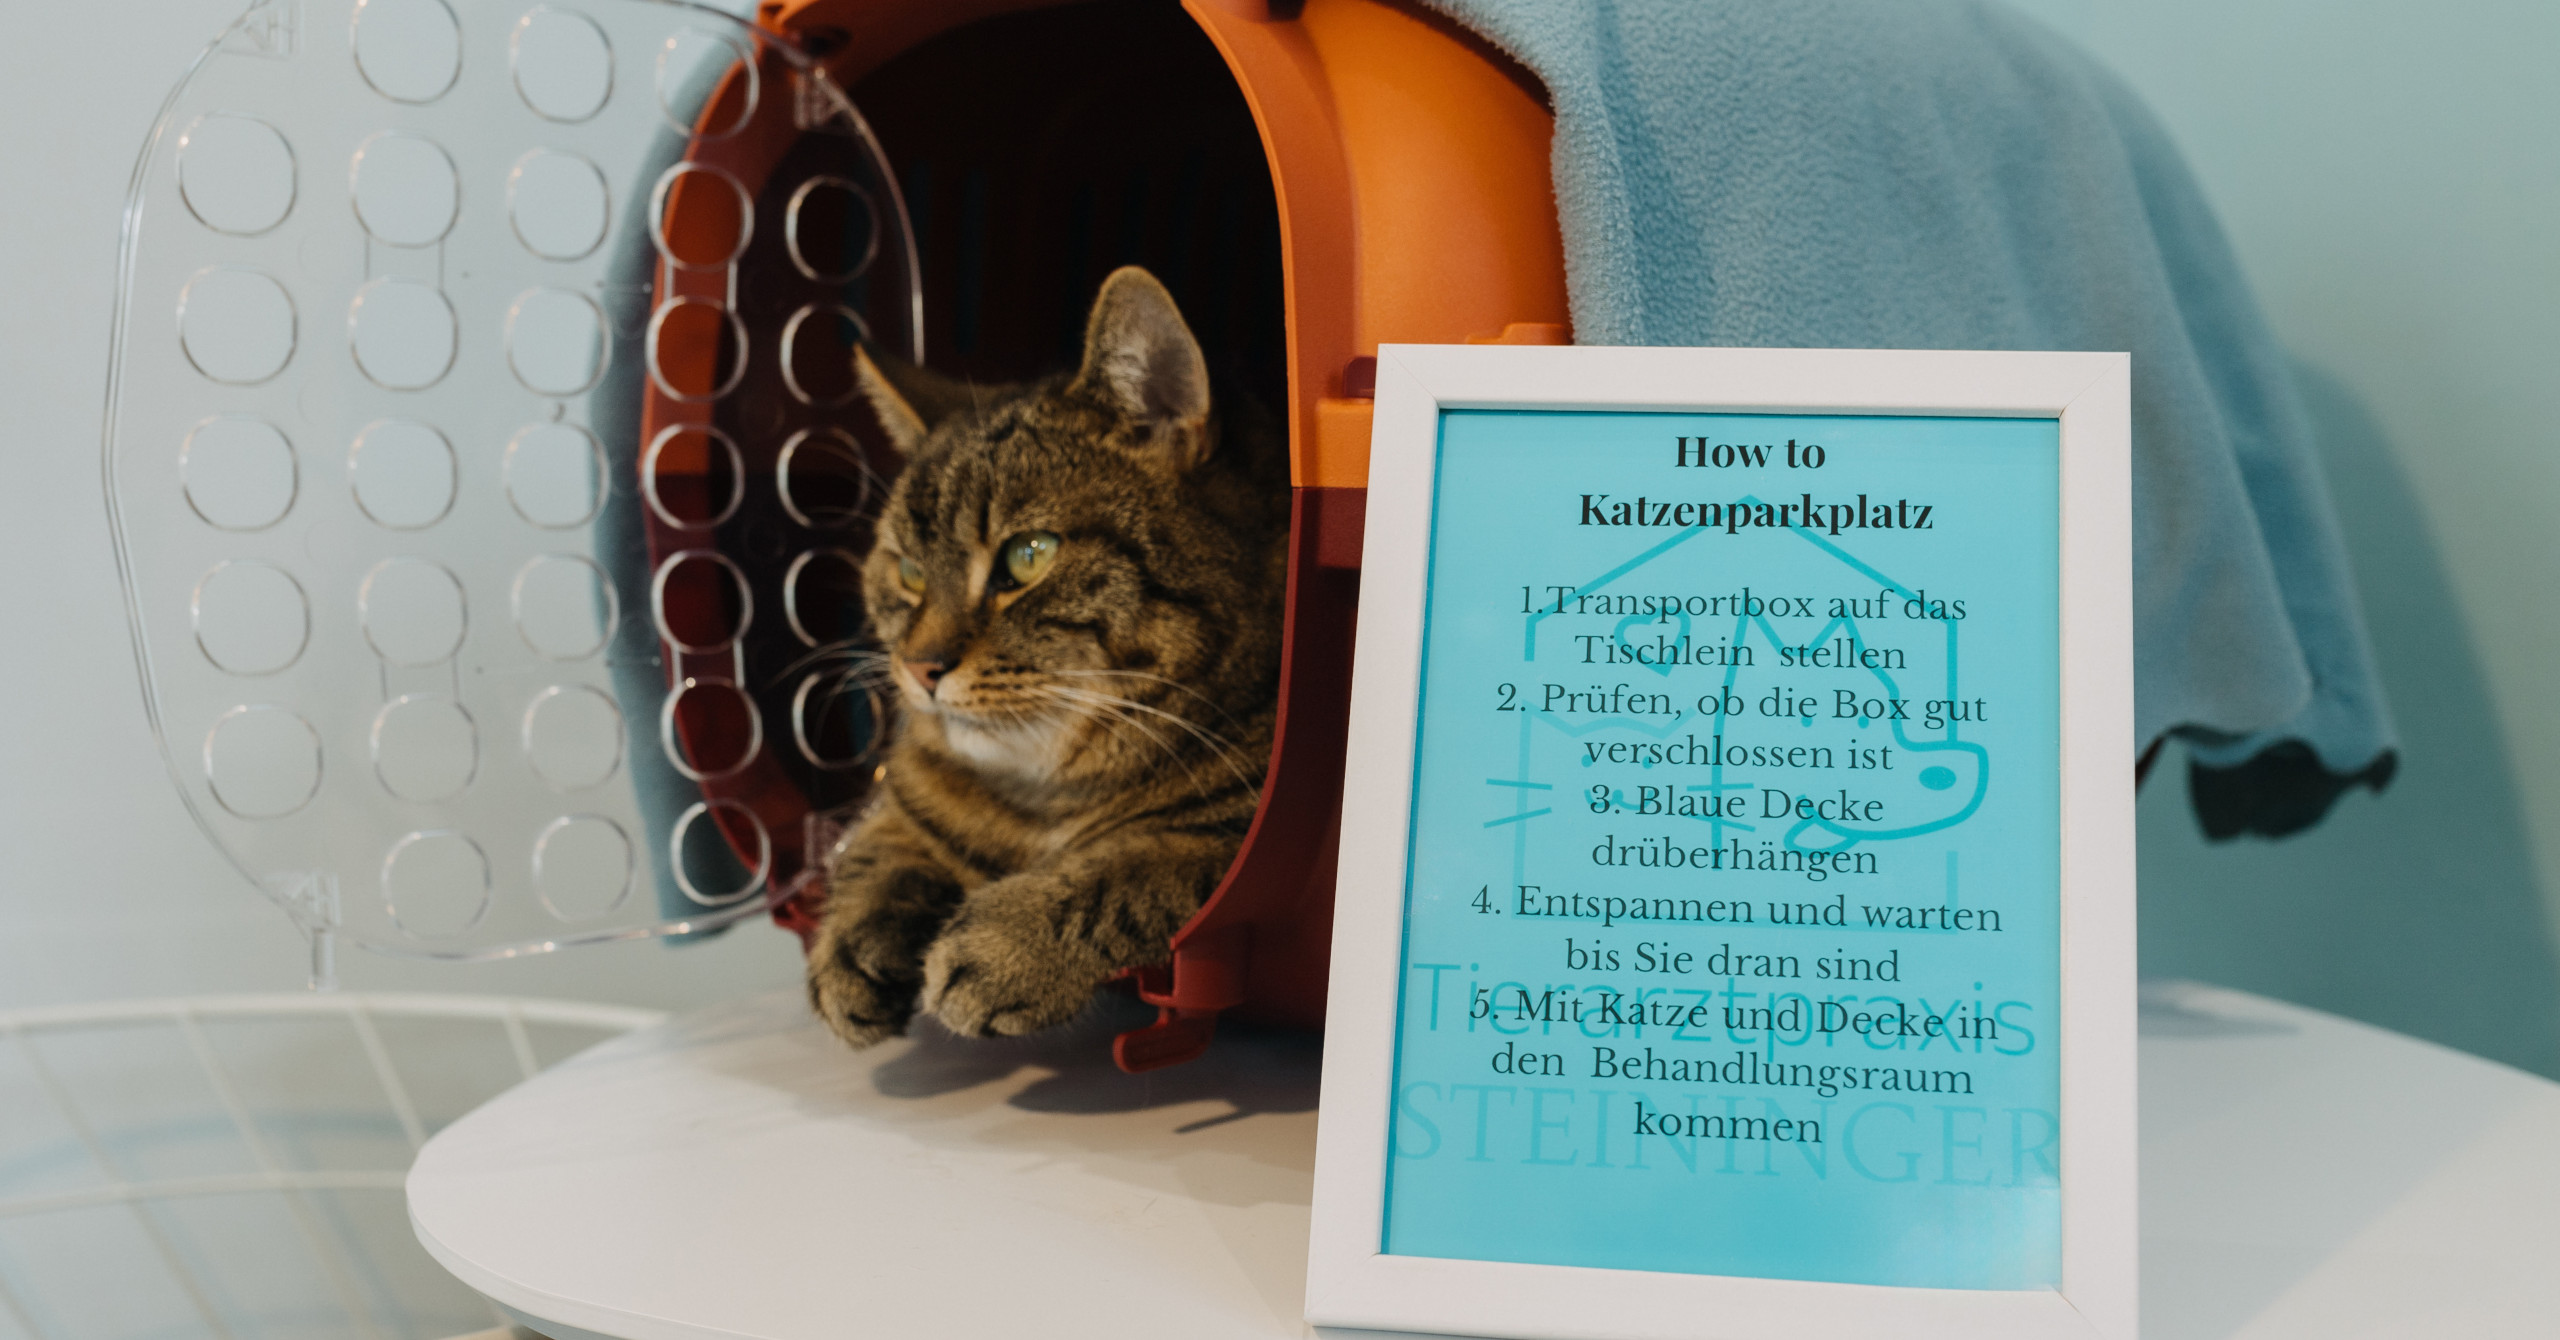 How to
Katzenparkplatz
1.Transportbox auf das
Tischlein stellen
2. Prüfen, ob die Box gut
verschlossen ist
3. Blaue Decke
drüberhängen
4. Entspannen und warten
bis Sie dran sind
5. Mit Katze und Decke in
den Behandlungsraum
kommen
Tierarztpraxis
STEININGER